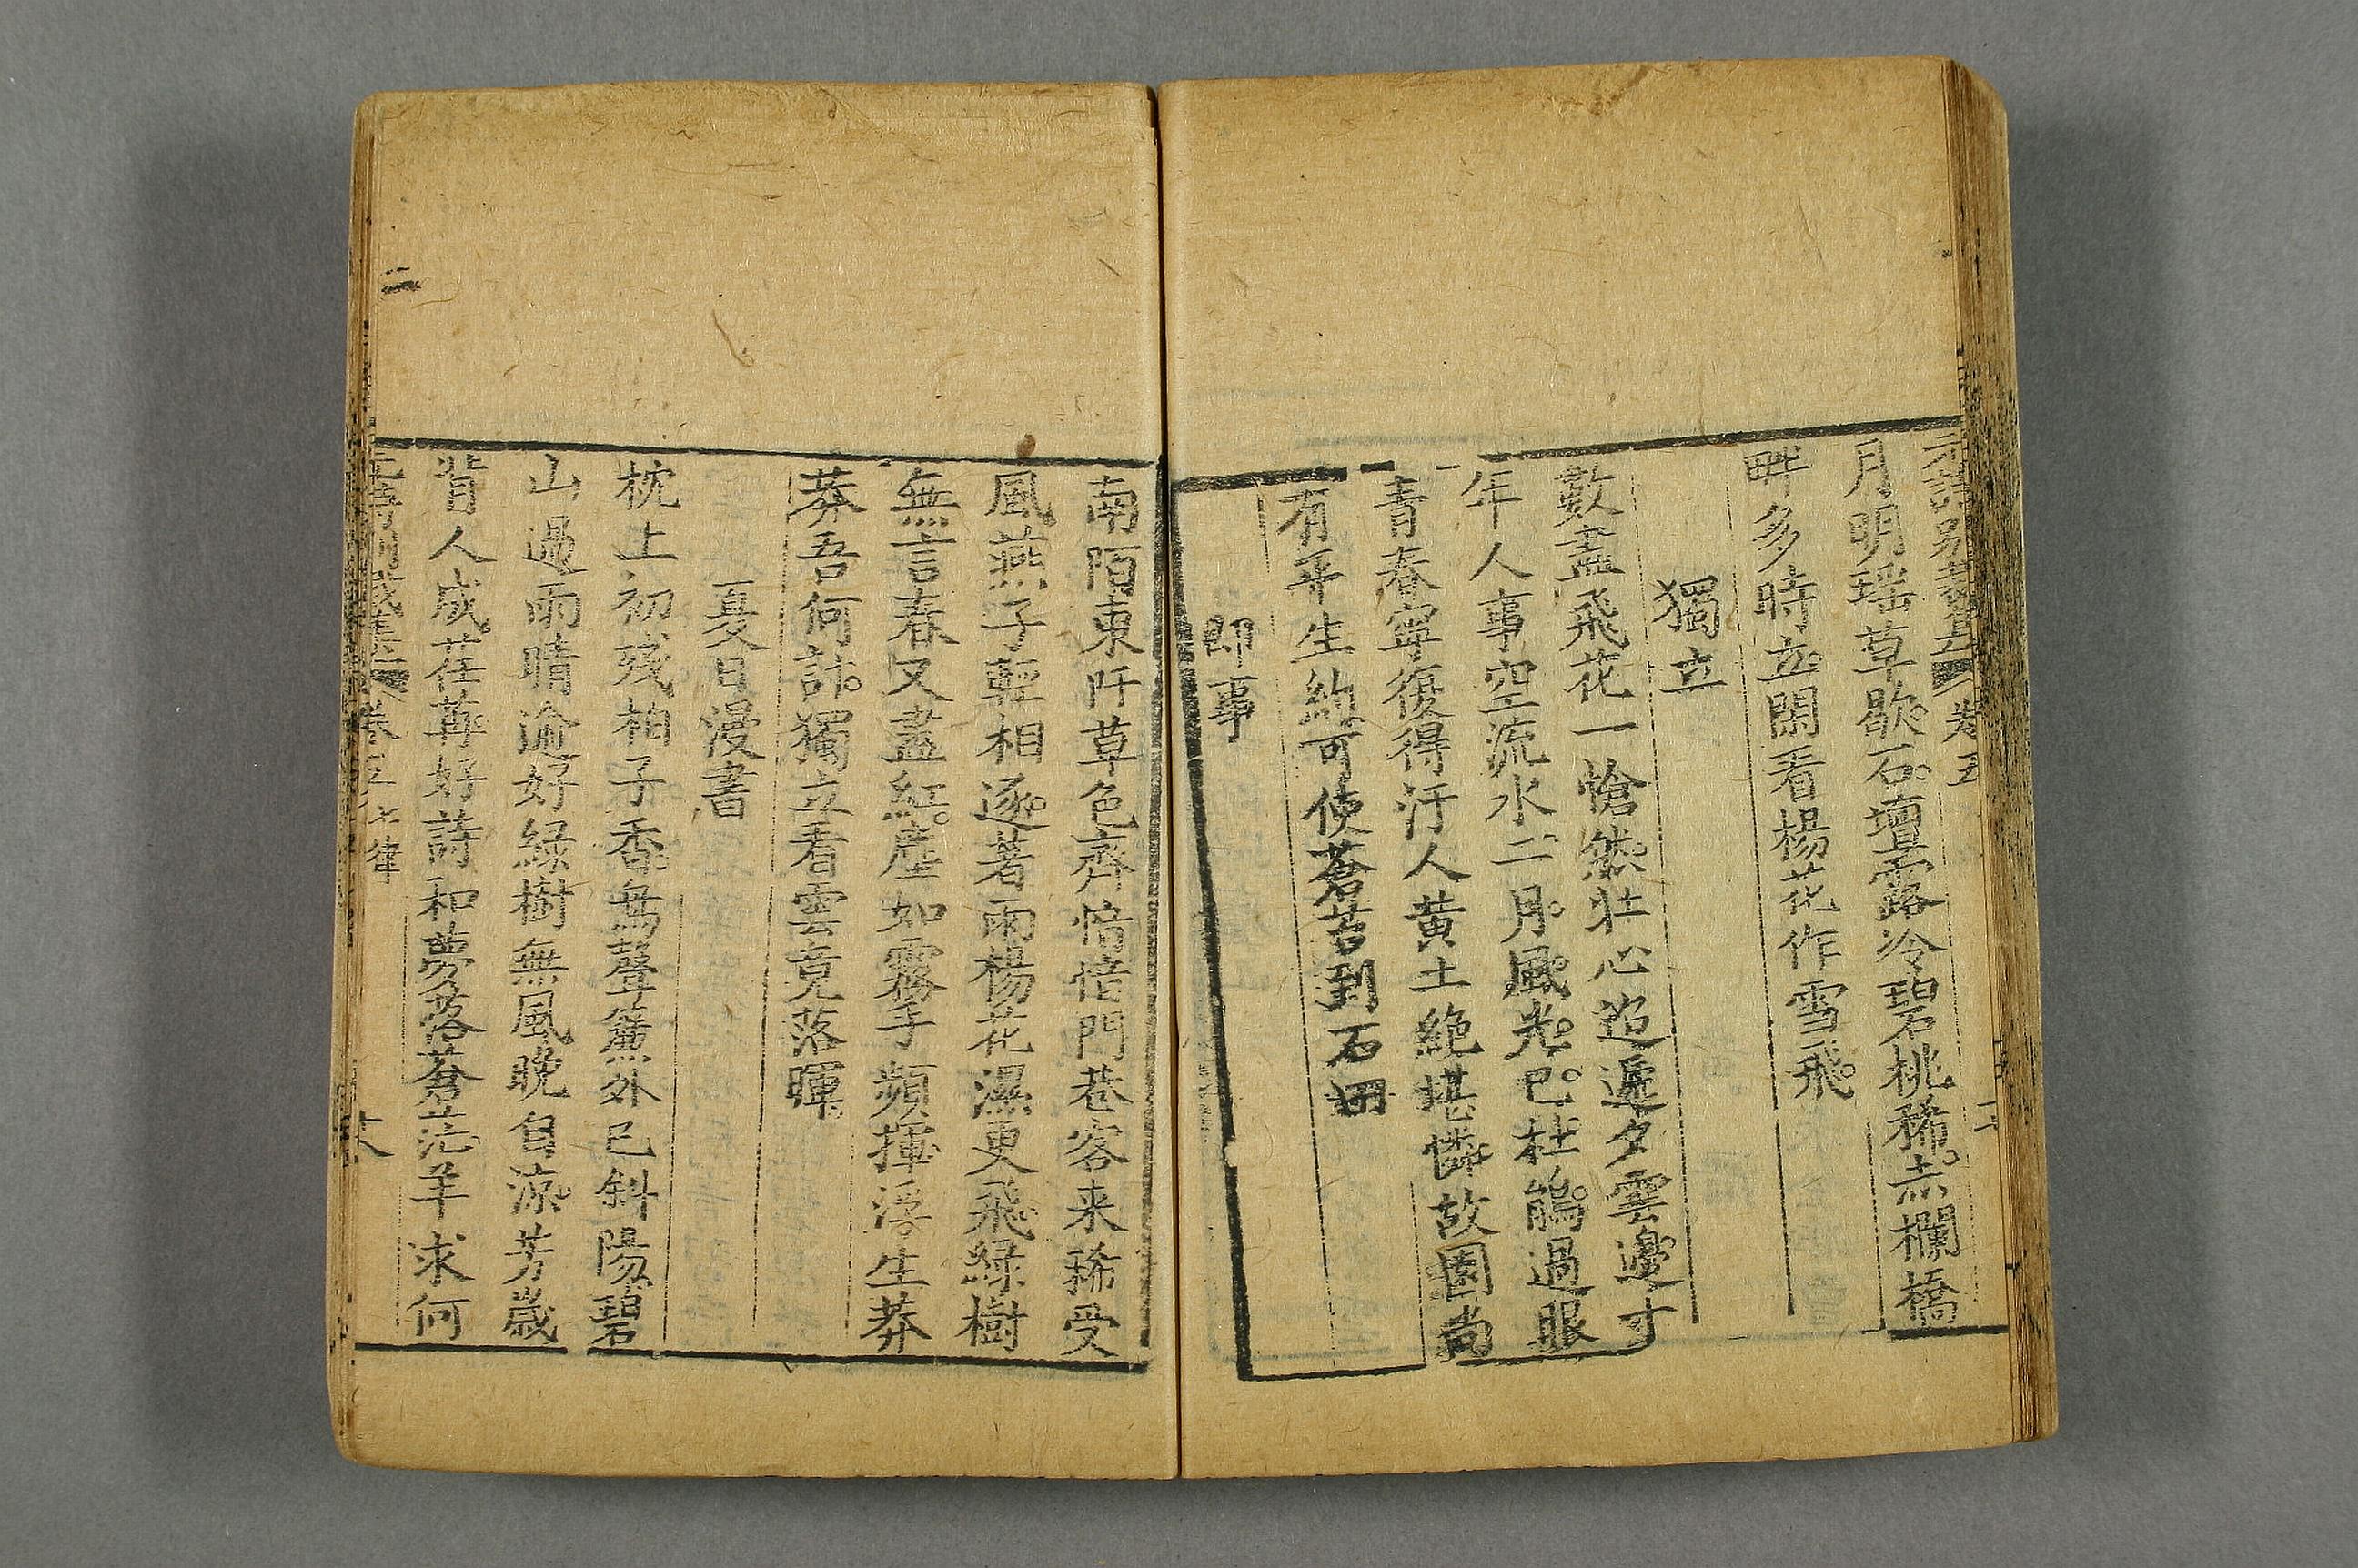 月明瑶草歇石壇露冷碧桃稀赤欄橋
畔多時立閑看楊花作雪飛
獨立
數盡飛花一愴然壯心迢遞夕雲邊寸
年人事空流水二月風光已杜鵑過眼
青春寧復得汙人黃土絶堪憐故園尚
有平生約可使蒼苔到石田
即事
南陌東阡草色齊愔愔門巷客来稀受
風燕子輕相逐著雨楊花濕更飛緑樹
無言春又盡紅塵如霧手頻揮浮生莽
莽吾何計獨立看雲竟落暉
夏日漫書
枕上初殘柏子香鳥聲簾外已斜陽碧
山過雨晴逾好緑樹無風晚自涼芳歲
背人成荏苒好詩和夢落蒼茫羊求何
卷五七律